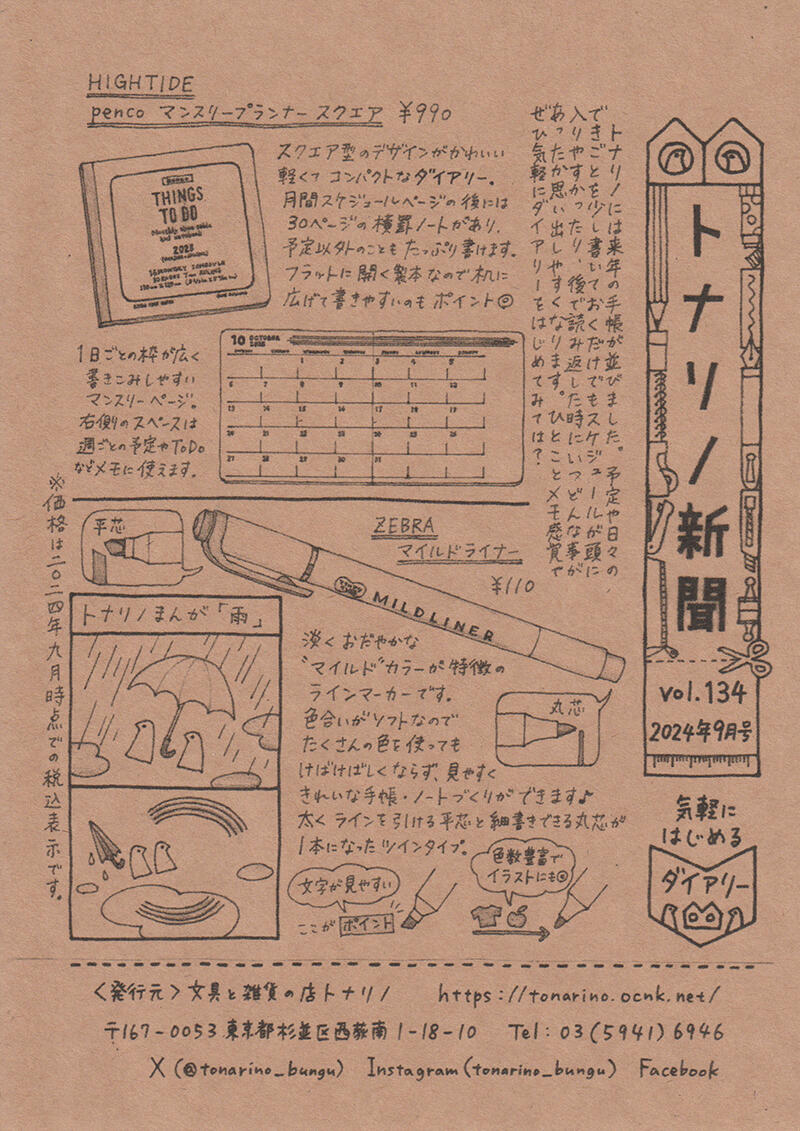 トナリノ新聞
vol.134
2024年9月号
気軽に
はじめる
ダイアリー
トナリノには来年の手帳が並びました。予定や日々の
できごとを少し書いておくだけでもスケジュールが頭に
入りやすかったり、後で読み返した時にいつどんな事が
あったか思い出しやすくなります。ひとことメモ感覚で
ぜひ気軽にダイアリーをはじめてみては？
HIGHTIDE
penco マンスリープランナー スクエア ¥990
スクエア型のデザインがかわいい
軽くてコンパクトなダイアリー。
月間スケジュールページの後には
30ページの横罫ノートがあり、
予定以外のこともたっぷり書けます。
フラットに開く製本なので机に
広げて書きやすいのもポイント◎
THINGS
TO DO
2025
1日ごとの枠が広く
書きこみしやすい
マンスリーページ。
右側のスペースは
週ごとの予定やToDo
などメモに使えます。
10 OCTOBER
1 2 3 4 5
6 7 8 9 10 11 12
13 14 15 16 17 18 19
20 21 22 23 24 25 26
27 28 29 30 31
ZEBRA
マイルドライナー
¥110
平芯
MILDLINER
丸芯
淡くおだやかな
"マイルド"カラーが特徴の
ラインマーカーです。
色合いがソフトなので
たくさんの色を使っても
けばけばしくならず、見やすく
きれいな手帳・ノートづくりができます♪
太くラインを引ける平芯と細書きできる丸芯が
1本になったツインタイプ。
文字が見やすい
ここがポイント
色数豊富で
イラストにも◎
トナリノまんが「雨」
※価格は二〇二四年九月時点での税込表示です。
<発行元>文具と雑貨の店トナリノ https://tonarino.ocnk.net/
〒167-0053 東京都杉並区西荻南1-18-10 Tel: 03(5941)6946
X (@tonarino_bungu) Instagram (tonarino_bungu) Facebook